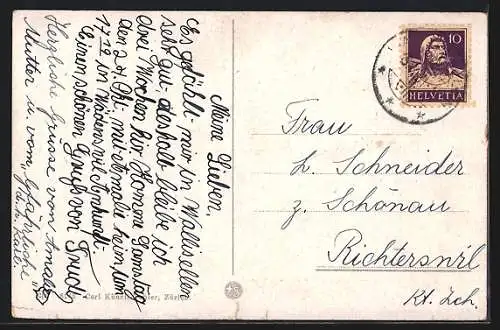 Meine Lieben.
Es gefällt mir in Wallisellen
sehr gut, deshalb bleibe ich
drei Wochen hier. Komme Samstag
den 24. mit
17 12 in Wädenswil
Einen schönen Gruß von Trud
Herzliche Grüsse von
Mutter u. vom
Carl Künzli Zürich.
10
HELVETIA
Frau
L. Schneider
z. Schönau
Richterswil
Kt. Zch.